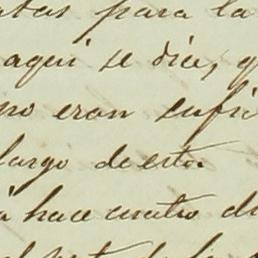 para la
aqui se dice, q
no eran sufri
largo de esto.
a hace cuatro di